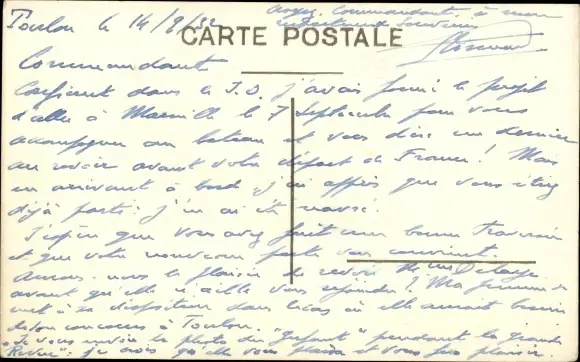 Toulon le 14/9/32
Croyez, Commandante, à mon
souvenir
CARTE POSTALE
Commandante
Confiant dans le J.O, j'avais formé le projet
d'aller à Marseille le 7 Septembre pour vous
accompagner au bateau et vous dire un dernier
au revoir avant votre départ de France! Mais
en arrivant à bord j'ai appris que vous étiez
déjà partis: j'en ai été navré.
J'espère que vous avez fait une bonne traversée
et que votre nouveau poste vous convient.
Aurons-nous le plaisir de revoir Mme Delage
avant qu'elle aille vous rejoindre? Ma femme se
met à sa disposition dans le cas où elle aurait besoin
de son concours à Toulon.
Je vous envoie la photo du pendant la grande
Revue: je crois qu'elle vous plaisir.